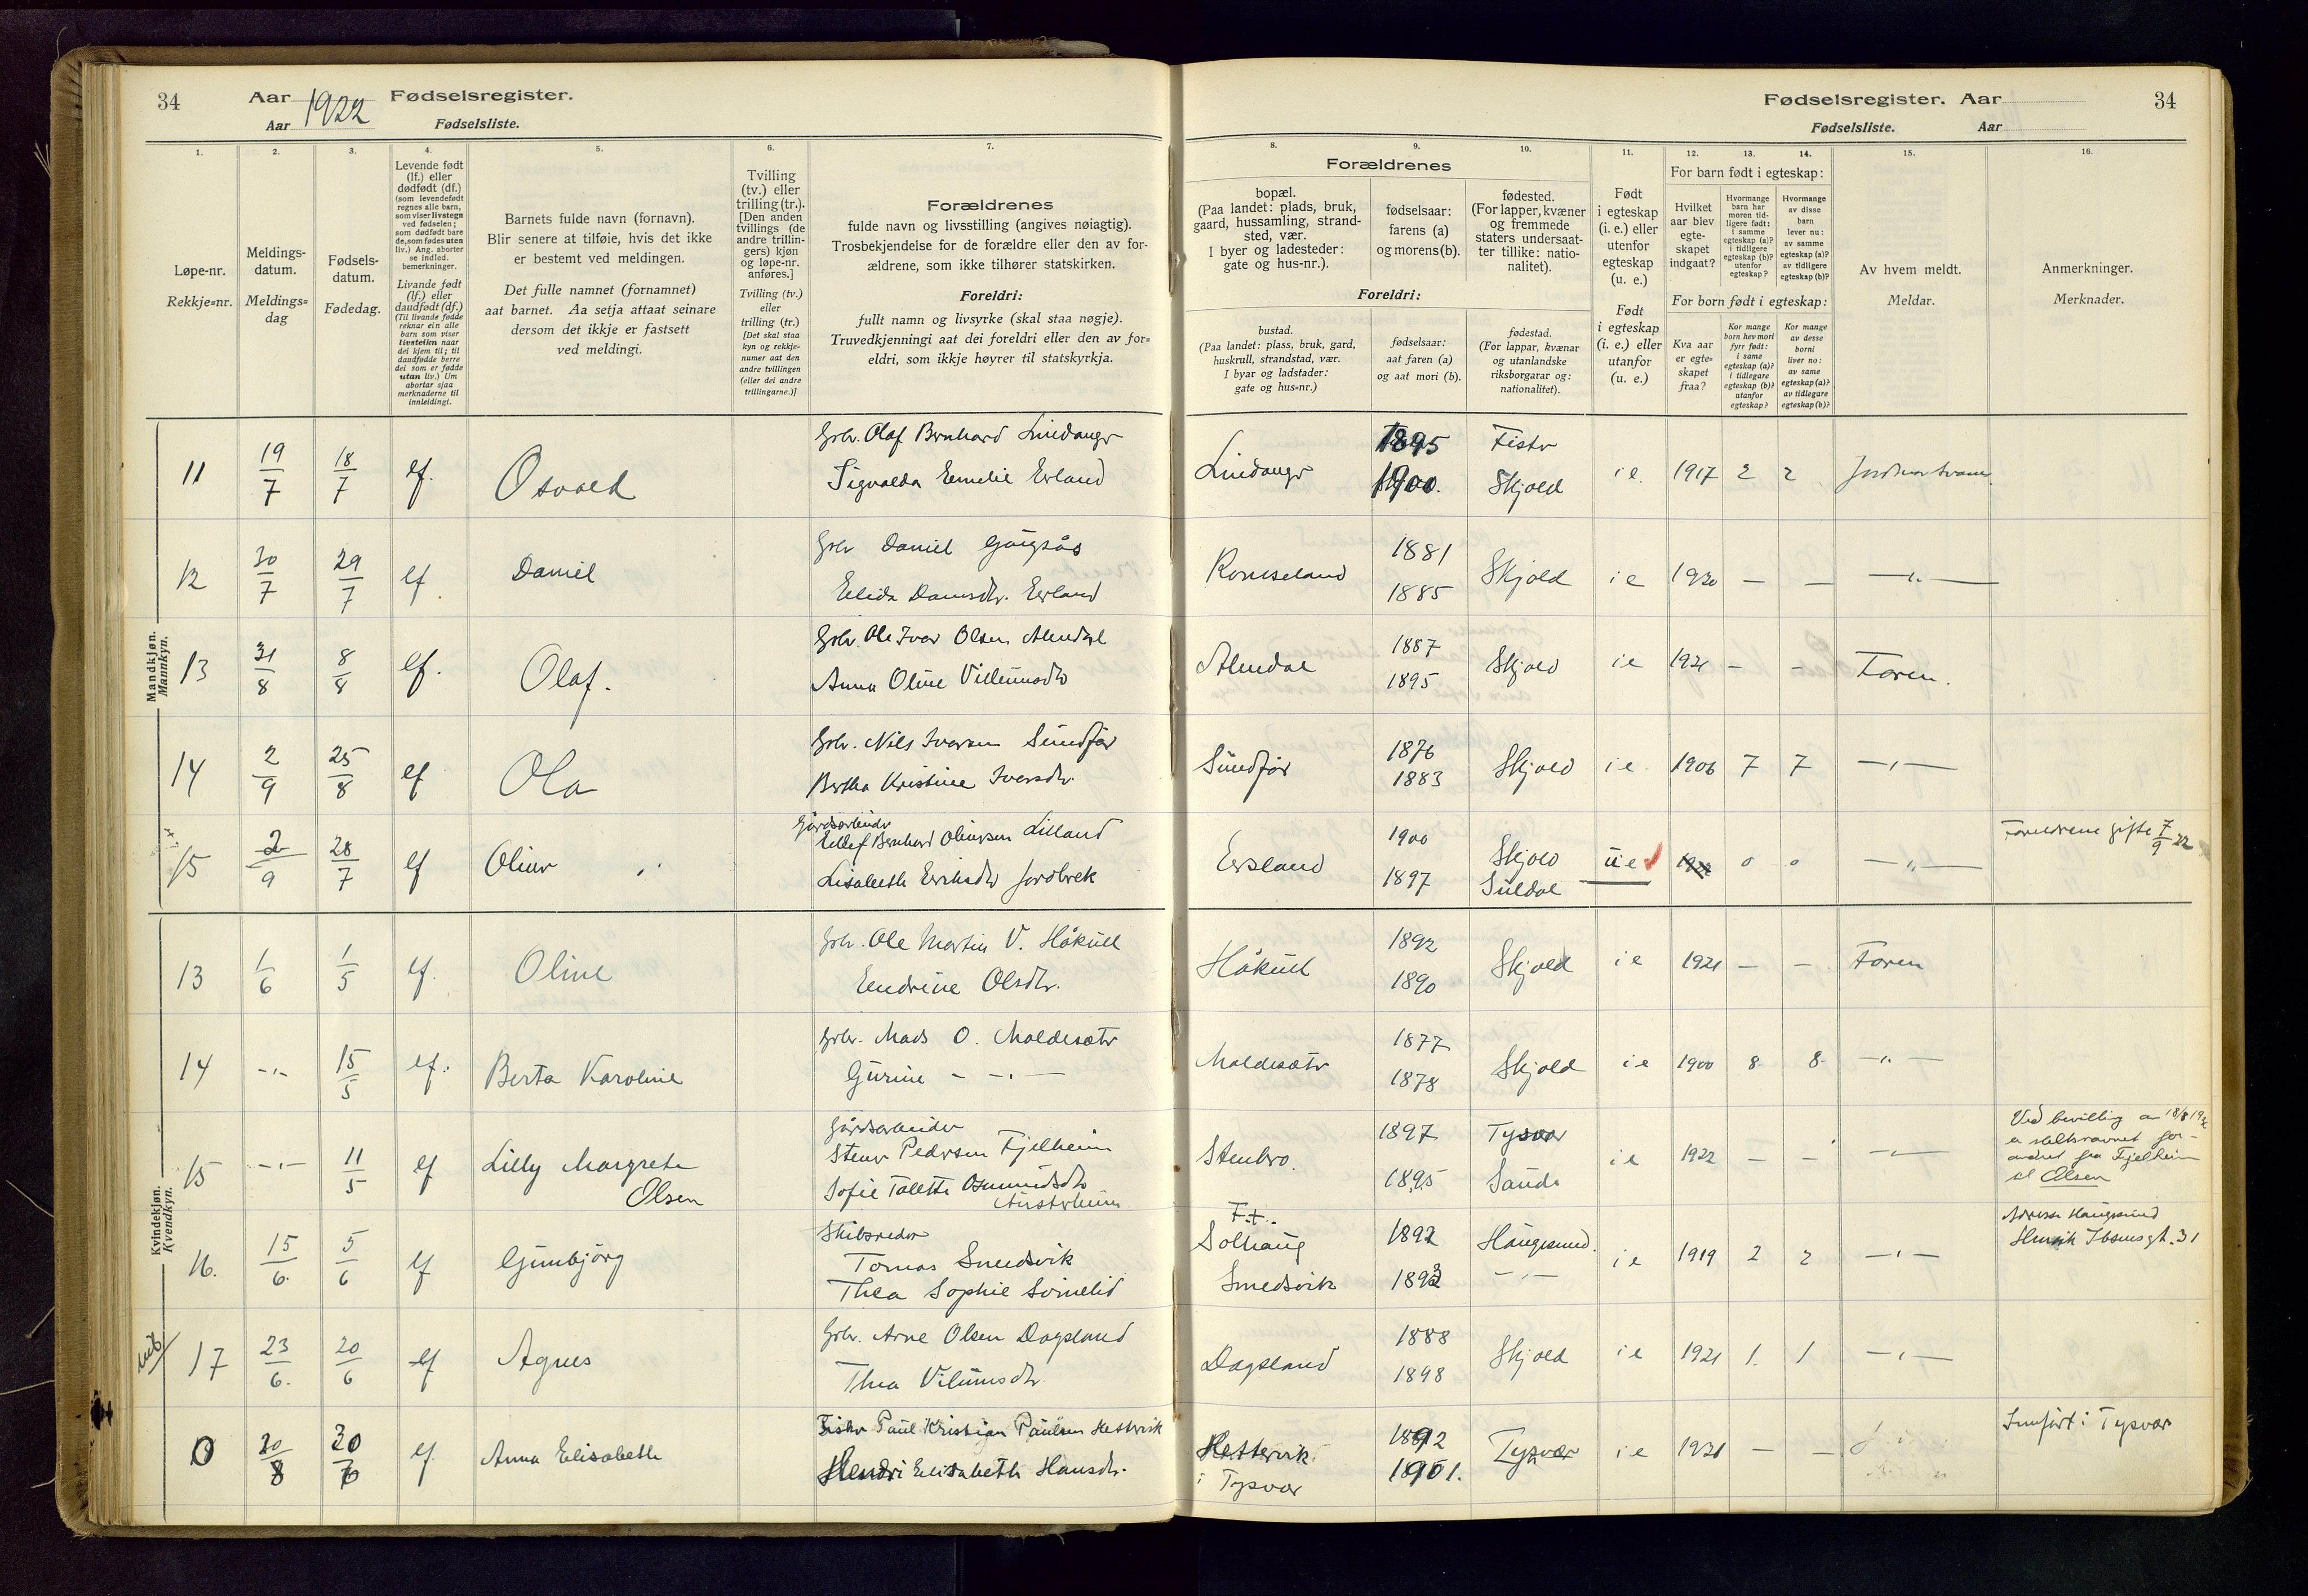 34
Aar 1922 Fødselsregister.
Aar Fødselsliste.
Fødselsregister. Aar
34
Fødselsliste. Aar
1.
2.
3.
4.
5.
6.
7.
8.
9.
10.
11.
12.
13.
14.
15.
16.
Løpe-nr.
Rekkje=nr.
Meldings-
datum.
Meldings=
dag
Fødsels-
datum.
Fødedag.
Levende født
(lf.) eller
dødfødt (df.)
(som levendefødt
regnes alle barn,
som viser livstegn
ved fødselen;
som dødfødt bare
de, som fødes uten
liv.) Ang. aborter
se indled.
bemerkninger.
Livande født
(lf.) eller
daudfødt (df.)
(Til livande fødde
reknar ein alle
barn som viser
livsteikn naar
dei kjem til; til
daudfødde berre
dei som er fødde
utan liv.) Um
abortar sjaa
merknaderne til
innleidingi.
Barnets fulde navn (fornavn).
Blir senere at tilføie, hvis det ikke
er bestemt ved meldingen.
Det fulle namnet (fornamnet)
aat barnet. Aa setja attaat seinare
dersom det ikkje er fastsett
ved meldingi.
Tvilling
(tv.) eller
trilling (tr.).
[Den anden
tvillings (de
andre trillin-
gers) kjøn
og løpe-nr.
anføres.]
Tvilling (tv.)
eller
trilling (tr.)
[Det skal staa
kyn og rekkje-
numer aat den
andre tvillingen
(eller dei andre
trillingarne.)]
Forældrenes
fulde navn og livsstilling (angives nøiagtig).
Trosbekjendelse for de forældre eller den av for-
ældrene, som ikke tilhører statskirken.
Foreldri:
fullt namn og livsyrke (skal staa nøgje).
Truvedkjenningi aat dei foreldri eller den av for=
eldri, som ikkje høyrer til statskyrkja.
Forældrenes
bopæl.
(Paa landet: plads, bruk,
gaard, hussamling, strand-
sted, vær.
I byer og ladesteder:
gate og hus-nr.).
fødselsaar:
farens (a)
og morens (b).
fødested.
(For lapper, kvæner
og fremmede
staters undersaat-
ter tillike: natio-
nalitet).
Foreldri:
bustad.
(Paa landet: plass, bruk, gard,
huskrull, strandstad, vær.
I byar og ladstader:
gate og hus=nr.)
fødselsaar:
aat faren (a)
og aat mori (b).
fødestad.
(For lappar, kvænar
og utanlandske
riksborgarar og:
nationalitet).
Født
i egteskap
(i. e.) eller
utenfor
egteskap
(u. e.)
Født
i egteskap
(i. e.) eller
utanfor
(u. e.)
For barn født i egteskap:
Hvilket
aar blev
egte-
skapet
indgaat?
Hvormange
barn har
moren tid-
ligere født:
i samme
egteskap (a)?
i tidligere
egteskap (b)?
utenfor
egteskap?
Hvormange
av disse
barn
lever nu:
av samme
egteskap (a)?
av tidligere
egteskap (b)?
For born født i egteskap:
Kva aar
er egte=
skapet
fraa?
Kor mange
born hev mori
fyrr født:
i same
egteskap (a)?
i tidlegare
egteskap (b)?
utanfor
egteskap?
Kor mange
av desse
borni
liver no:
av same
egteskap (a)?
av tidlegare
egteskap (b)?
Av hvem meldt.
Meldar.
Anmerkninger.
Merknader.
Mandkjøn.
Mannkyn.
11 19/7 18/7 lf. Osvald
Grbr. Olaf Bernhard Lindanger
Sigvalda Emelie Erland
Lindanger 1895 Fister
1900. Skjold i e. 1917 2 2
12 30/7 29/7 lf. Daniel
Grbr Daniel
Elida Erland
1881
1885 Skjold i e 1920 — — —"—
13 31/8 8/8 lf. Olaf.
Grbr. Ole Ivar Olsen Alendal
Anna Oline
Alendal 1887
1895 Skjold i e 1921 – – Faren.
14 2/9 25/8 lf Ola
Grbr. Nils Iversen Sundfør
Bertha Kristine Iversdtr.
Sundfør 1876
1883 Skjold i e 1906 7 7 —"—
15 2/9 28/7 lf Oliver
Gårdsarbeider
Bernhard Oliversen Lilland
Lisabeth Eriksdtr
Ersland 1900 Skjold
1897 Suldal u e 0 0 —"—
Foreldrene gifte 7/9 22
Kvindekjøn.
Kvendkyn.
13 1/6 1/5 lf. Oline
Grbr. Ole Martin V. Håkull
Endrine Olsdtr.
Håkull 1892
1890 Skjold i e 1921 – – Faren
14 -"- 15/5 lf. Berta Karoline
Grbr. Mads O. Moldesæter
Gurine – –"–
Moldesæter 1877
1878 Skjold i e 1900 8 8 –"–
15 -"- 11/5 lf Lilly Margrete
Olsen
Gårdsarbeider
Pedersen Fjelheim
Sofie Tolette Osmundsdtr
Austerheim
Stenbro. 1897 Tysvær
1895 Sauda i e 1922 – – –"–
Ved bevilling av 18/8 19
er slektsnavnet for-
andret fra Fjelheim
til Olsen
16. 15/6. 5/6 lf Gunbjørg
Skibsreder
Tomas Smedsvik
Thea Sophie
F.t.
Solhaug
Smedsvik 1892 Haugesund.
1893 –"– i e 1919 2 2 –"–
Adresse Haugesund
Henrik Ibsensgt. 31
17 23/6. 20/6 lf Agnes
Grbr. Arne Olsen Dagsland
Thea
Dagsland 1888
1898 Skjold i e 1921 1. 1 –"–
0 20/8 30/6 lf. Anna Elisabeth
Fisker Paul Kristian Paulsen Hettervik
Hendri Elisabeth Hansdtr.
Hettervik
i Tysvær 1892
1901. Tysvær i e 1921 – –
Innført i Tysvær